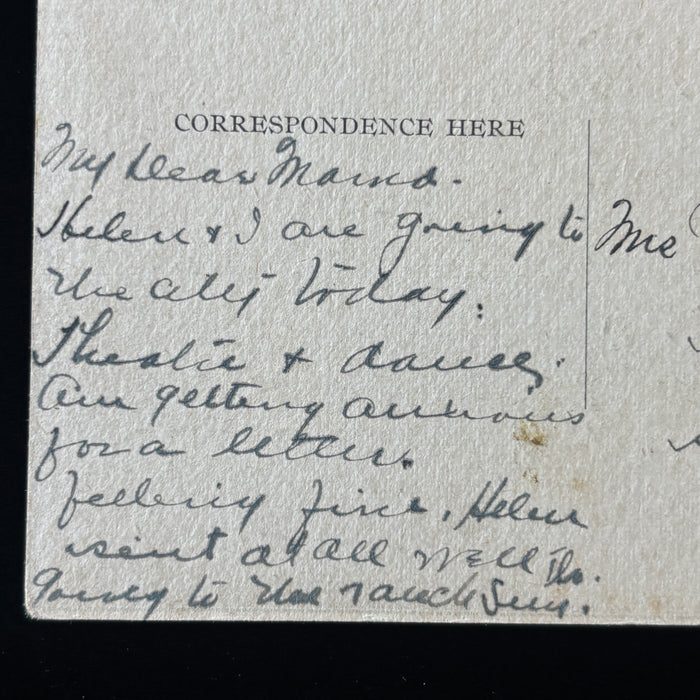 CORRESPONDENCE HERE
My Dear Mama.
Helen & I are going to
the city today.
Theatre & dance.
Am getting anxious
for a letter.
feeling fine. Helen
isent at all well tho.
going to the ranch Sun.